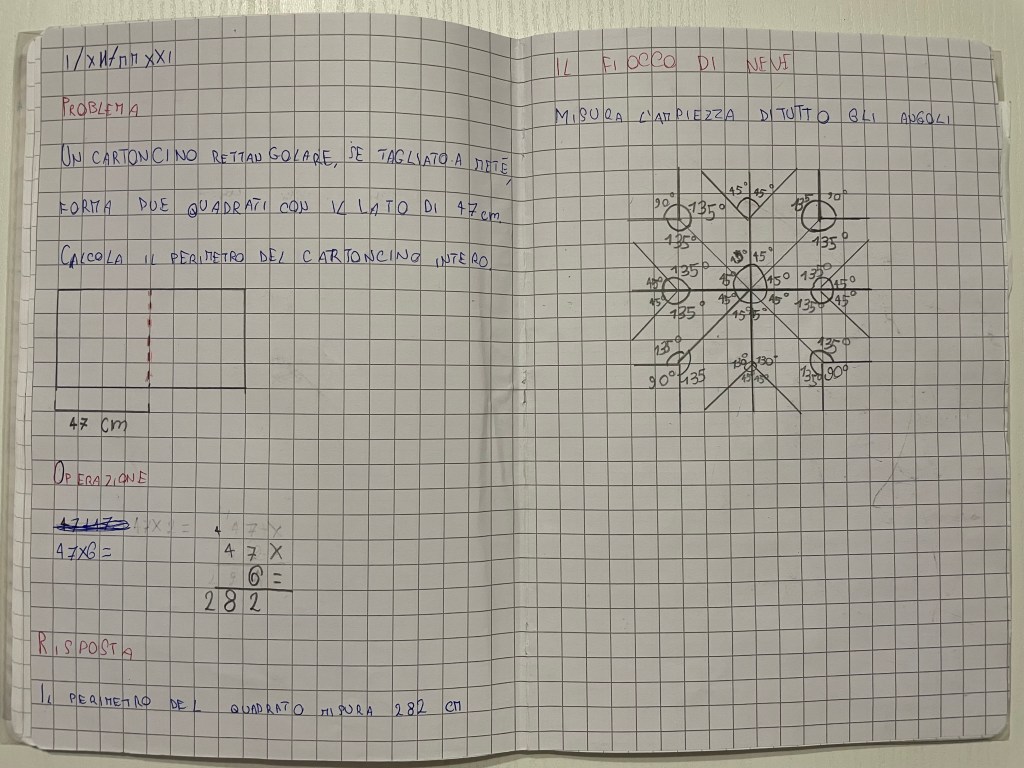 1/XII/MMXXI
PROBLEMA
UN CARTONCINO RETTANGOLARE, SE TAGLIATO A METÈ,
FORMA DUE QUADRATI CON IL LATO DI 47 cm
CALCOLA IL PERIMETRO DEL CARTONCINO INTERO.
47 cm
OPERAZIONE
4
47X6= 47X
6=
282
RISPOSTA
IL PERIMETRO DEL QUADRATO MISURA 282 CM
IL FIOCCO DI NEVE
MISURA L'AMPIEZZA DI TUTTO GLI ANGOLI
45° 45°
90° 135° 135° 90°
135° 135°
45° 45
135° 135°
45° 45° 45° 45°
45° 45° 45° 45°
135 135°
45 45°
135° 135°
130° 130°
90° 135 45 45° 135° 90°